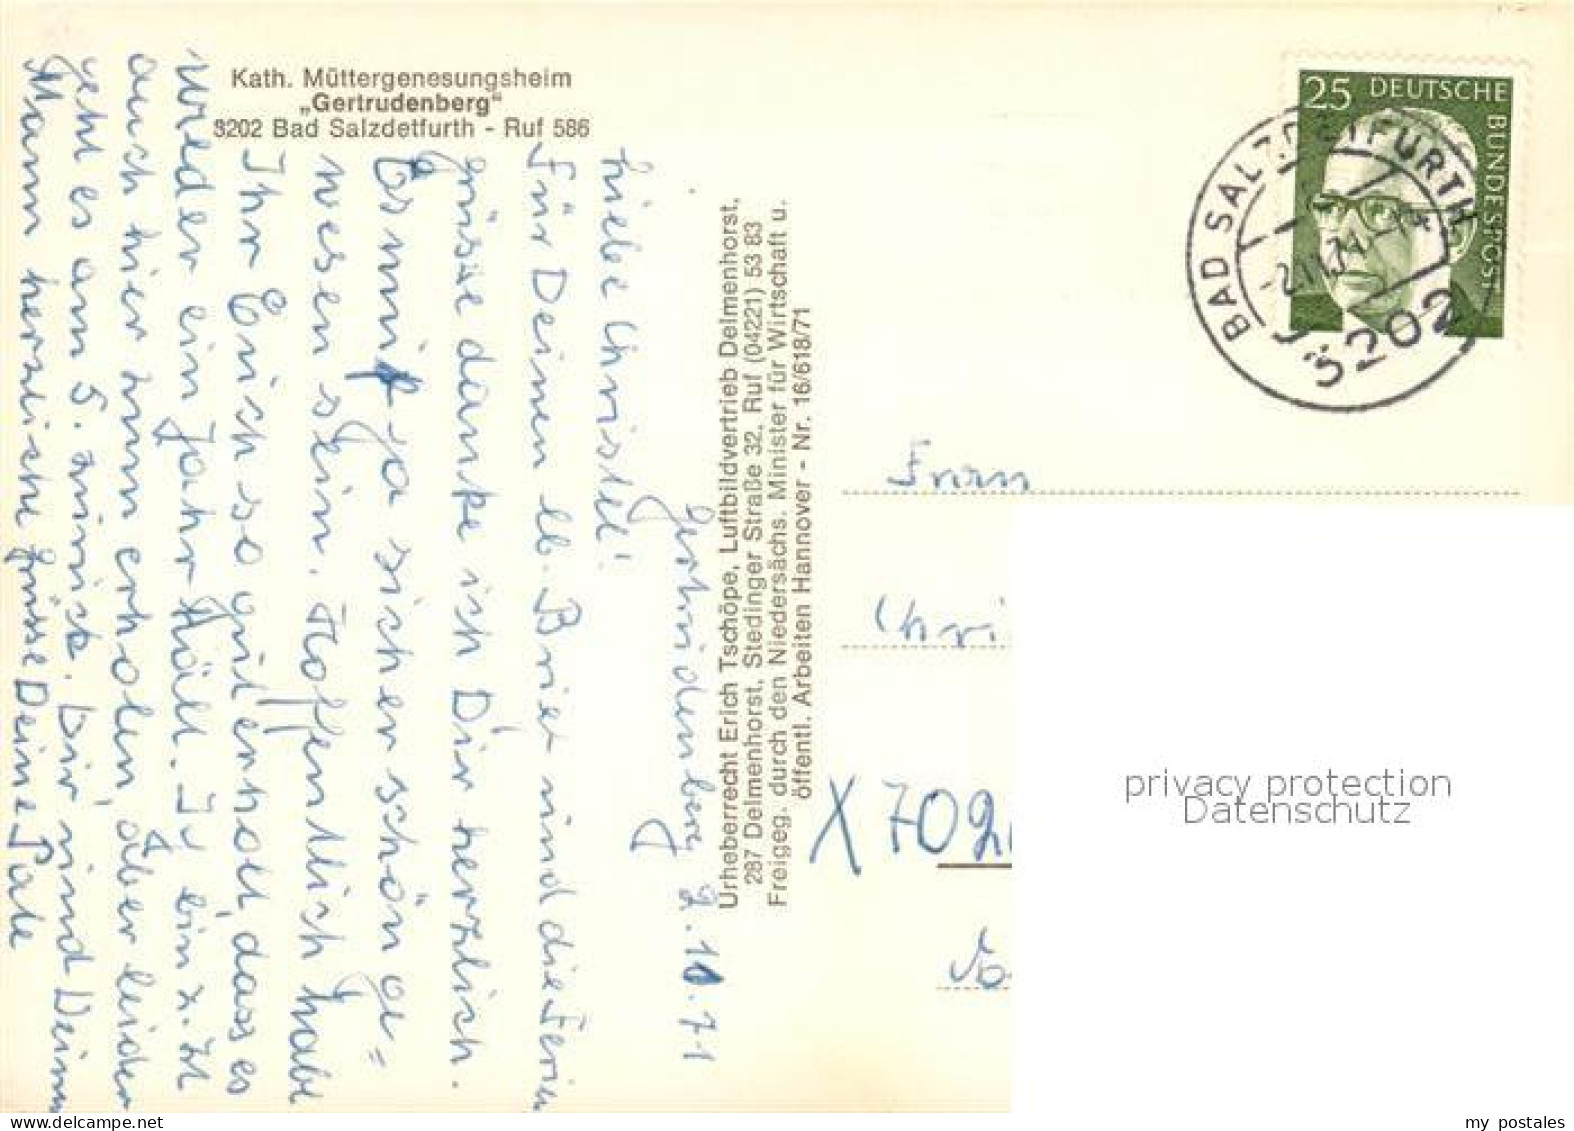 Kath. Müttergenesungsheim
„Gertrudenberg“
3202 Bad Salzdetfurth - Ruf 586
Gertrudenberg 2.11.71
Liebe Christel!
Für Deinen lb. Brief und die Ferien
grüsse danke ich Dir herzlich.
Es muß ja sicher schön ge=
wesen sein. Hoffentlich habt
Ihr Euch so gut erholt, dass es
wieder ein Jahr hält. Ich bin z. Zt
auch hier zum erholen, aber leider
geht es am 5. zurück. Dir und Deinem
Mann herzliche Grüsse Deine
Urheberrecht Erich Tschöpe, Luftbildvertrieb Delmenhorst,
287 Delmenhorst, Stedinger Straße 32, Ruf (04221) 53 83
Freigeg. durch den Niedersächs. Minister für Wirtschaft u.
öffentl. Arbeiten Hannover - Nr. 16/618/71
25 DEUTSCHE BUNDESPOST
BAD SALZDETFURTH
3202
Frau
Chri
X 702
privacy protection
Datenschutz
www.delcampe.net
my_postales